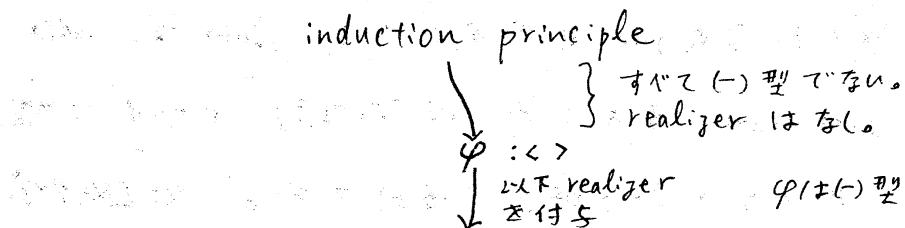 induction principle
すべて (−) 型 でない。
realizer は なし。
φ : < >
以下 realizer
を 付与
φは(−) 型